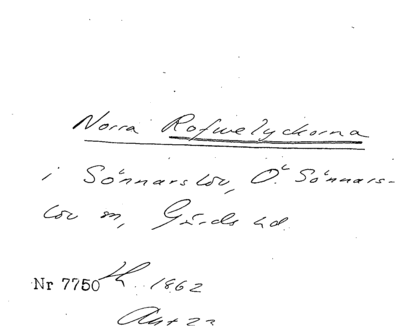 Norra Rofwelyckorna
i Sönnarslöv, Ö. Sönnars-
löv sn, Gärds hd.
Nr 7750 1862
Akt 22